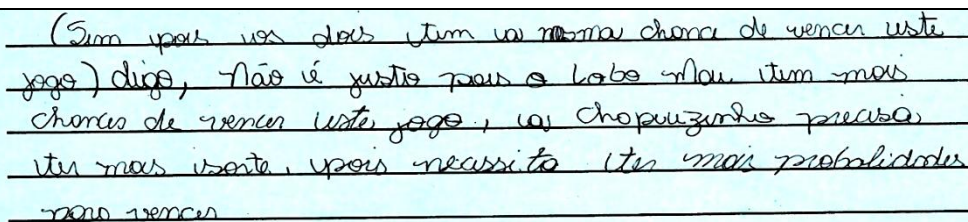 (Sim pois os dois tem a mesma chance de vencer este
jogo) digo, não é justo pois o Lobo Mau tem mais
chances de vencer este jogo, a Chapeuzinho precisa
ter mais sorte, pois necessita ter mais probalidades
para vencer